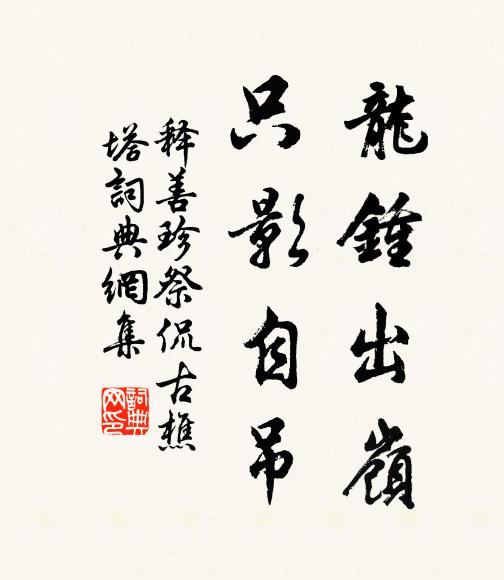 龍鍾出嶺
只影自吊
释善珍祭侃古樵
塔詞典網集
詞典
网印